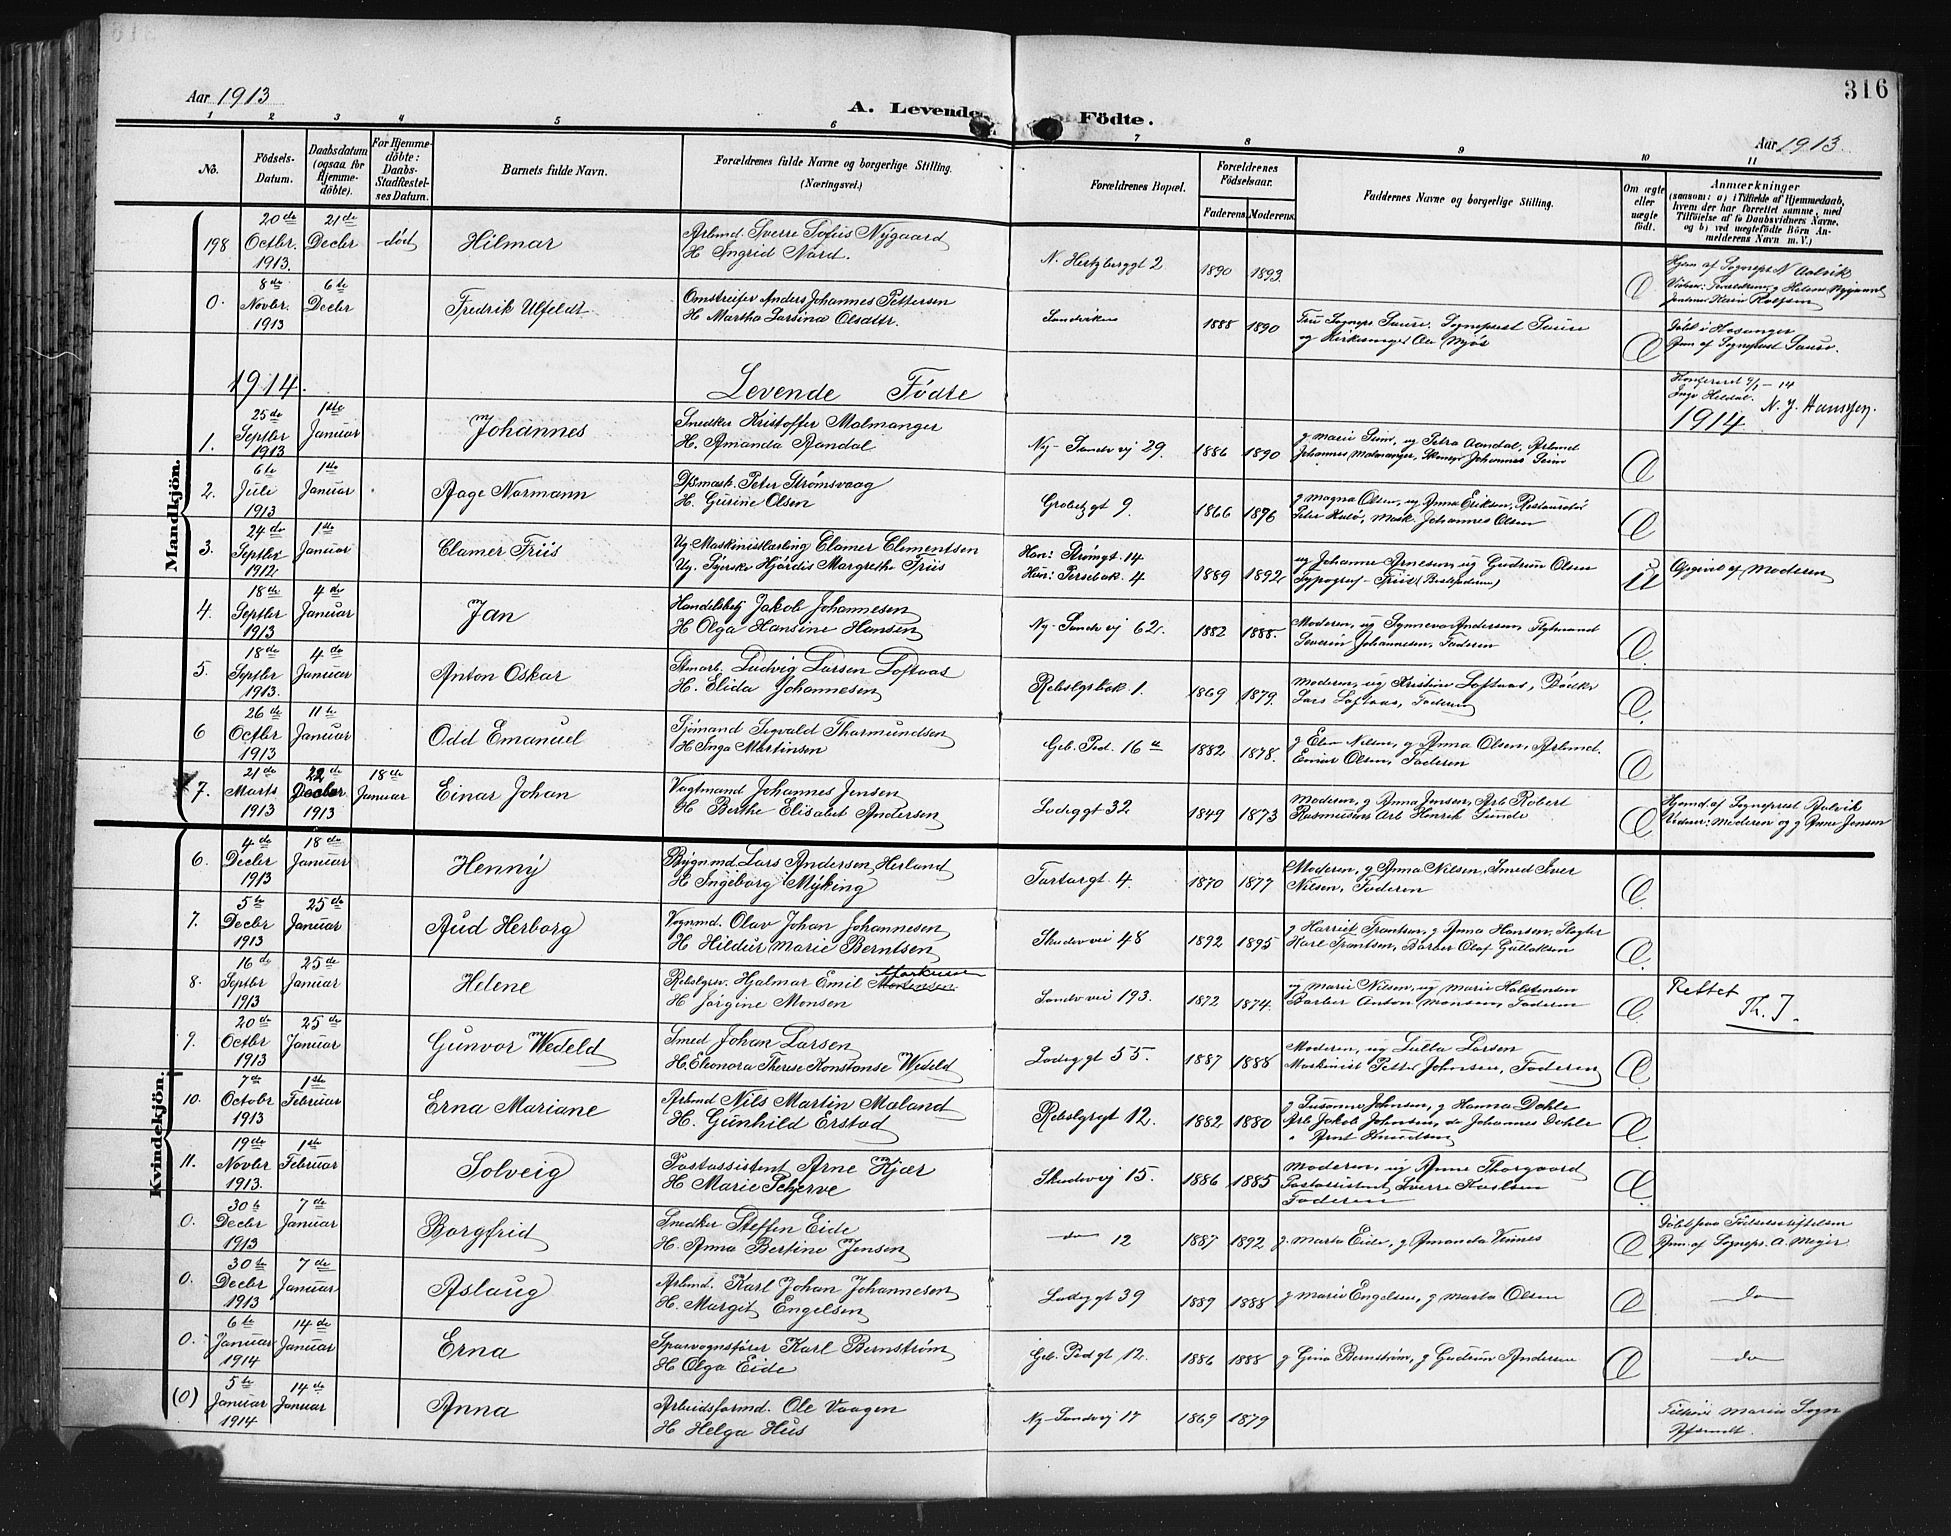 316
Aar 1913
A. Levende Födte.
Aar 1913.
1 2 3 4 5 6 7 8 9 10 11
No.
Födsels-
Datum.
Daabsdatum
(ogsaa for
Hjemme-
döbte).
For Hjemme-
döbte:
Daabs-
Stadfæstel-
ses Datum.
Barnets fulde Navn.
Forældrenes fulde Navne og borgerlige Stilling.
(Næringsvei.)
Forældrenes Bopæl.
Forældrenes
Födselsaar.
Faderens. Moderens.
Faddernes Navne og borgerlige Stilling.
Om ægte
eller
uægte
födt.
Anmærkninger
(saasom: a) i Tilfælde af Hjemmedaab,
hvem der har forrettet samme, med
Tilföielse af to Daabsvidners Navne,
og b) ved uægtefödte Börn An-
melderens Navn m. V.)
Mandkjön.
198 20de Octbr. 1913. 21de Decbr död Hilmar
Arbmd. Sverre Tofius Nygaard
H Ingrid Nord.
N. Hertzberggt 2 1890 1893.
Hjem af Sogneps N Aalvik
0. 8de Novbr. 1913 6te Decbr Fredrik Ulfeldt
Omstreifer Anders Johannes Pettersen
H Martha Larsine Olsdttr.
Sandviken 1888 1890
og Kirkesanger Ole Mjös
Döbt i Hosanger
1914. Levende Födte
N. J. Hanssen.
1914
1. 25de Septbr 1913 1ste Januar Johannes
Snedker Kristoffer Malmanger
H. Amanda Aandal
Ny-Sandvvj 29. 1886 1890
g Marie Seim, ug Petra Aandal, Arbmd
Johannes Malmanger, Skomgr Johannes Seim
2. 6te Juli 1913 1ste Januar Aage Normann
Dpsmask. Peter Strømsvaag
H. Gusine Olsen
Grobetzgt 9. 1866 1876
g Magna Olsen, ug Anna Eriksen, Restauratør
Peter Hulö, Mask. Johannes Olsen
3. 24de Septbr 1912 1ste Januar Clamer Friis
Ug. Maskinistlærling Clamer Clementsen
Ug. Syerske Hjördis Margrethe Friis
Han: Strömgt. 14
Hun: Persebak. 4
1889 1892
ug Johanne Arnesen, ug Gudrun Olsen
Typograf Friis (Bestefaderen)
U Opgivet af Moderen
4. 18de Septbr 1913 4de Januar Jan
Handelsbtj Jakob Johannesen
H Olga Hansine Hansen
Ny-Sandvvj 62. 1882 1888.
Moderen, ug Synneva Andersen, Styrmand
Severin Johannesen, Faderen
5. 18de Septbr 1913. 4de Januar Anton Oskar
Stmarb. Ludvig Larsen Loftaas
H. Elida Johannesen
Rebslgrbak. 1. 1869 1879.
Moderen, ug Kristine Loftaas, Bödker
Lars Loftaas, Faderen
6 26de Octbr 1913 11te Januar Odd Emanuel
Sjömand Sigvald Thormundsen
H Inga Martinsen
Geb. Ped. 16 a 1882 1878.
g Elen Nilsen, g Anna Olsen, Arbmd.
Einar Olsen, Faderen
7. 21de Marts 1913 22de Decbr 1913 18de Januar Einar Johan
Vagtmand Johannes Jensen
H Berthe Elisabet Andersen
Ladeggt 32 1849 1873
Moderen, g Anna Jensen, Arb Robert
Rasmussen Arb Henrik Sunde
Hjemd af Sogneprest Aalvik
Vidner: Moderen og g Anne Jensen
Kvindekjön.
6. 4de Decbr 1913 18de Januar Henny
Bygnmd. Lars Andersen Herland
H Ingeborg Myking
Tartargt. 4. 1870 1877
Moderen, g Anna Nilsen, Smed Iver
Nilsen, Faderen
7. 5te Decbr 1913 25de Januar Aud Herborg
Vognmd. Olav Johan Johannesen
H Hildur Marie Berntsen
Skudevvei 48 1892 1895
g Harriet Frantsen, g Anna Hansen, Slagter
Karl Frantsen, Barber Olaf Gullaksen
8. 16de Septbr 1913 25de Januar Helene
Markussen
Rebslgrsv. Hjalmar Emil Mortensen
H Jörgine Monsen
Sandvvei 193. 1872 1874.
ug Marie Nilsen, ug Marie Halstensen
Barber Anton Monsen, Faderen
Rettet
Th. J.
9. 20de Octbr 1913 25de Januar Gunvor Wedeld
Smed Johan Larsen
H. Eleonora Therese Konstanse Wedeld
Ladeggt 55. 1887 1888
Moderen, ug Lulla Larsen
Maskinist Petter Johnsen, Faderen
10. 7de Octobr 1913 1ste Februar Erna Mariane
Arbmd Nils Martin Moland
H. Gunhild Erstad
Rebslgrgt 12. 1882 1880
g Susanne Johnsen, g Hanna Dahle
Arb Jakob Johnsen, do Johannes Dahle
" Arnt Knudsen
11. 19de Novbr 1913. 1ste Februar Solveig
Postassistent Arne Kjær
H Marie Scherve
Skudevvj 15. 1886 1885
Moderen, ug Anne Thorgaard
Postassistent Sverre Karlsen
Faderen
0. 30te Decbr 1913 7de Januar Borgfrid
Snedker Steffen Eide
H. Anna Bertine Jensen
do 12 1887 1892
g. Marta Eide, g Amanda Vinnes
Döbt paa Födselsstiftelsen
Anm. af Sogneps. A. Meyer
0. 30te Decbr 1913 7de Januar Aslaug
Arbmd. Karl Johan Johannesen
H. Margit Engelsen
Ladeggt 39 1889 1888
g Marie Engelsen, g Marta Olsen
do
0. 6te Januar 1914 14de Januar Erna
Sporvognsfører Karl Bernström
H Olga Eide
Geb. Pedgt 12. 1886 1888
g Gina Bernström, g Gudrun Andersen
do
(0) 5te Januar 1914 14de Januar Anna
Arbeidsformd. Ole Vaagen
H Helga Hus
Ny-Sandvvj 17 1869 1879
Tilhöre Maria Sogn